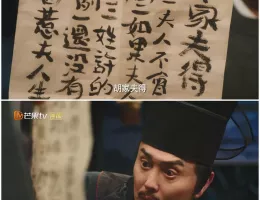 家夫得
夫人不
如果夫
三姓許的
一還没有
惹夫人生
胡家夫得
芒果tv